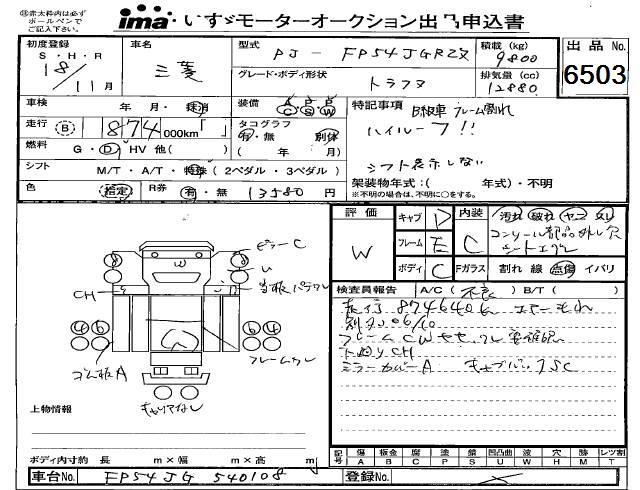 ㊟赤太枠内は必ず
ボールペンで
ご記入下さい。
ima いすゞモーターオークション出品申込書
初度登録 S・H・R 18/11月
車名 三菱
型式 PJ-FP54JGR2X
積載 (kg) 9800
出品No. 6503
グレード・ボディ形状 トラクタ
排気量 (cc) 12880
車検 年 月・抹消
装備 A/C P/S P/W
特記事項 B級車 フレーム割れ
走行 (B) 874 000km「 」
タコグラフ 有・無 別体
ハイルーフ!!
燃料 G・D・HV 他( )
( 年 月)
シフト M/T・A/T・特殊 (2ペダル・3ペダル)
シフト表示しない
架装物年式:( 年式)・不明
※不明の場合は、不明に○をする。
色 指定 R券 有・無 13580 円
評価 W
キャブ D
フレーム E
ボディ C
内装 C
Fガラス
汚れ 破れ ヤニ スレ
コンソール部品外し穴
シートエアレ
割れ 線 点傷 イバリ
検査員報告 A/C(不良) B/T( )
表示874640k エアーもれ
別タンク6/10
フレームCWセセ、クレ 要確認
下廻りCH
ミラーカバーA キャブバックSC
ミラーC
U
CH
W
4 6
6 4
ゴム板A
フレームワレ
キャリアなし
上物情報
ボディ内寸約 長 m×幅 m×高 m
記号 傷A 板金B 腐C 塗P 錆S 凹凸曲U 波W 穴H 跡M レンズ割T
車台No. FP54JG 540108
登録No.